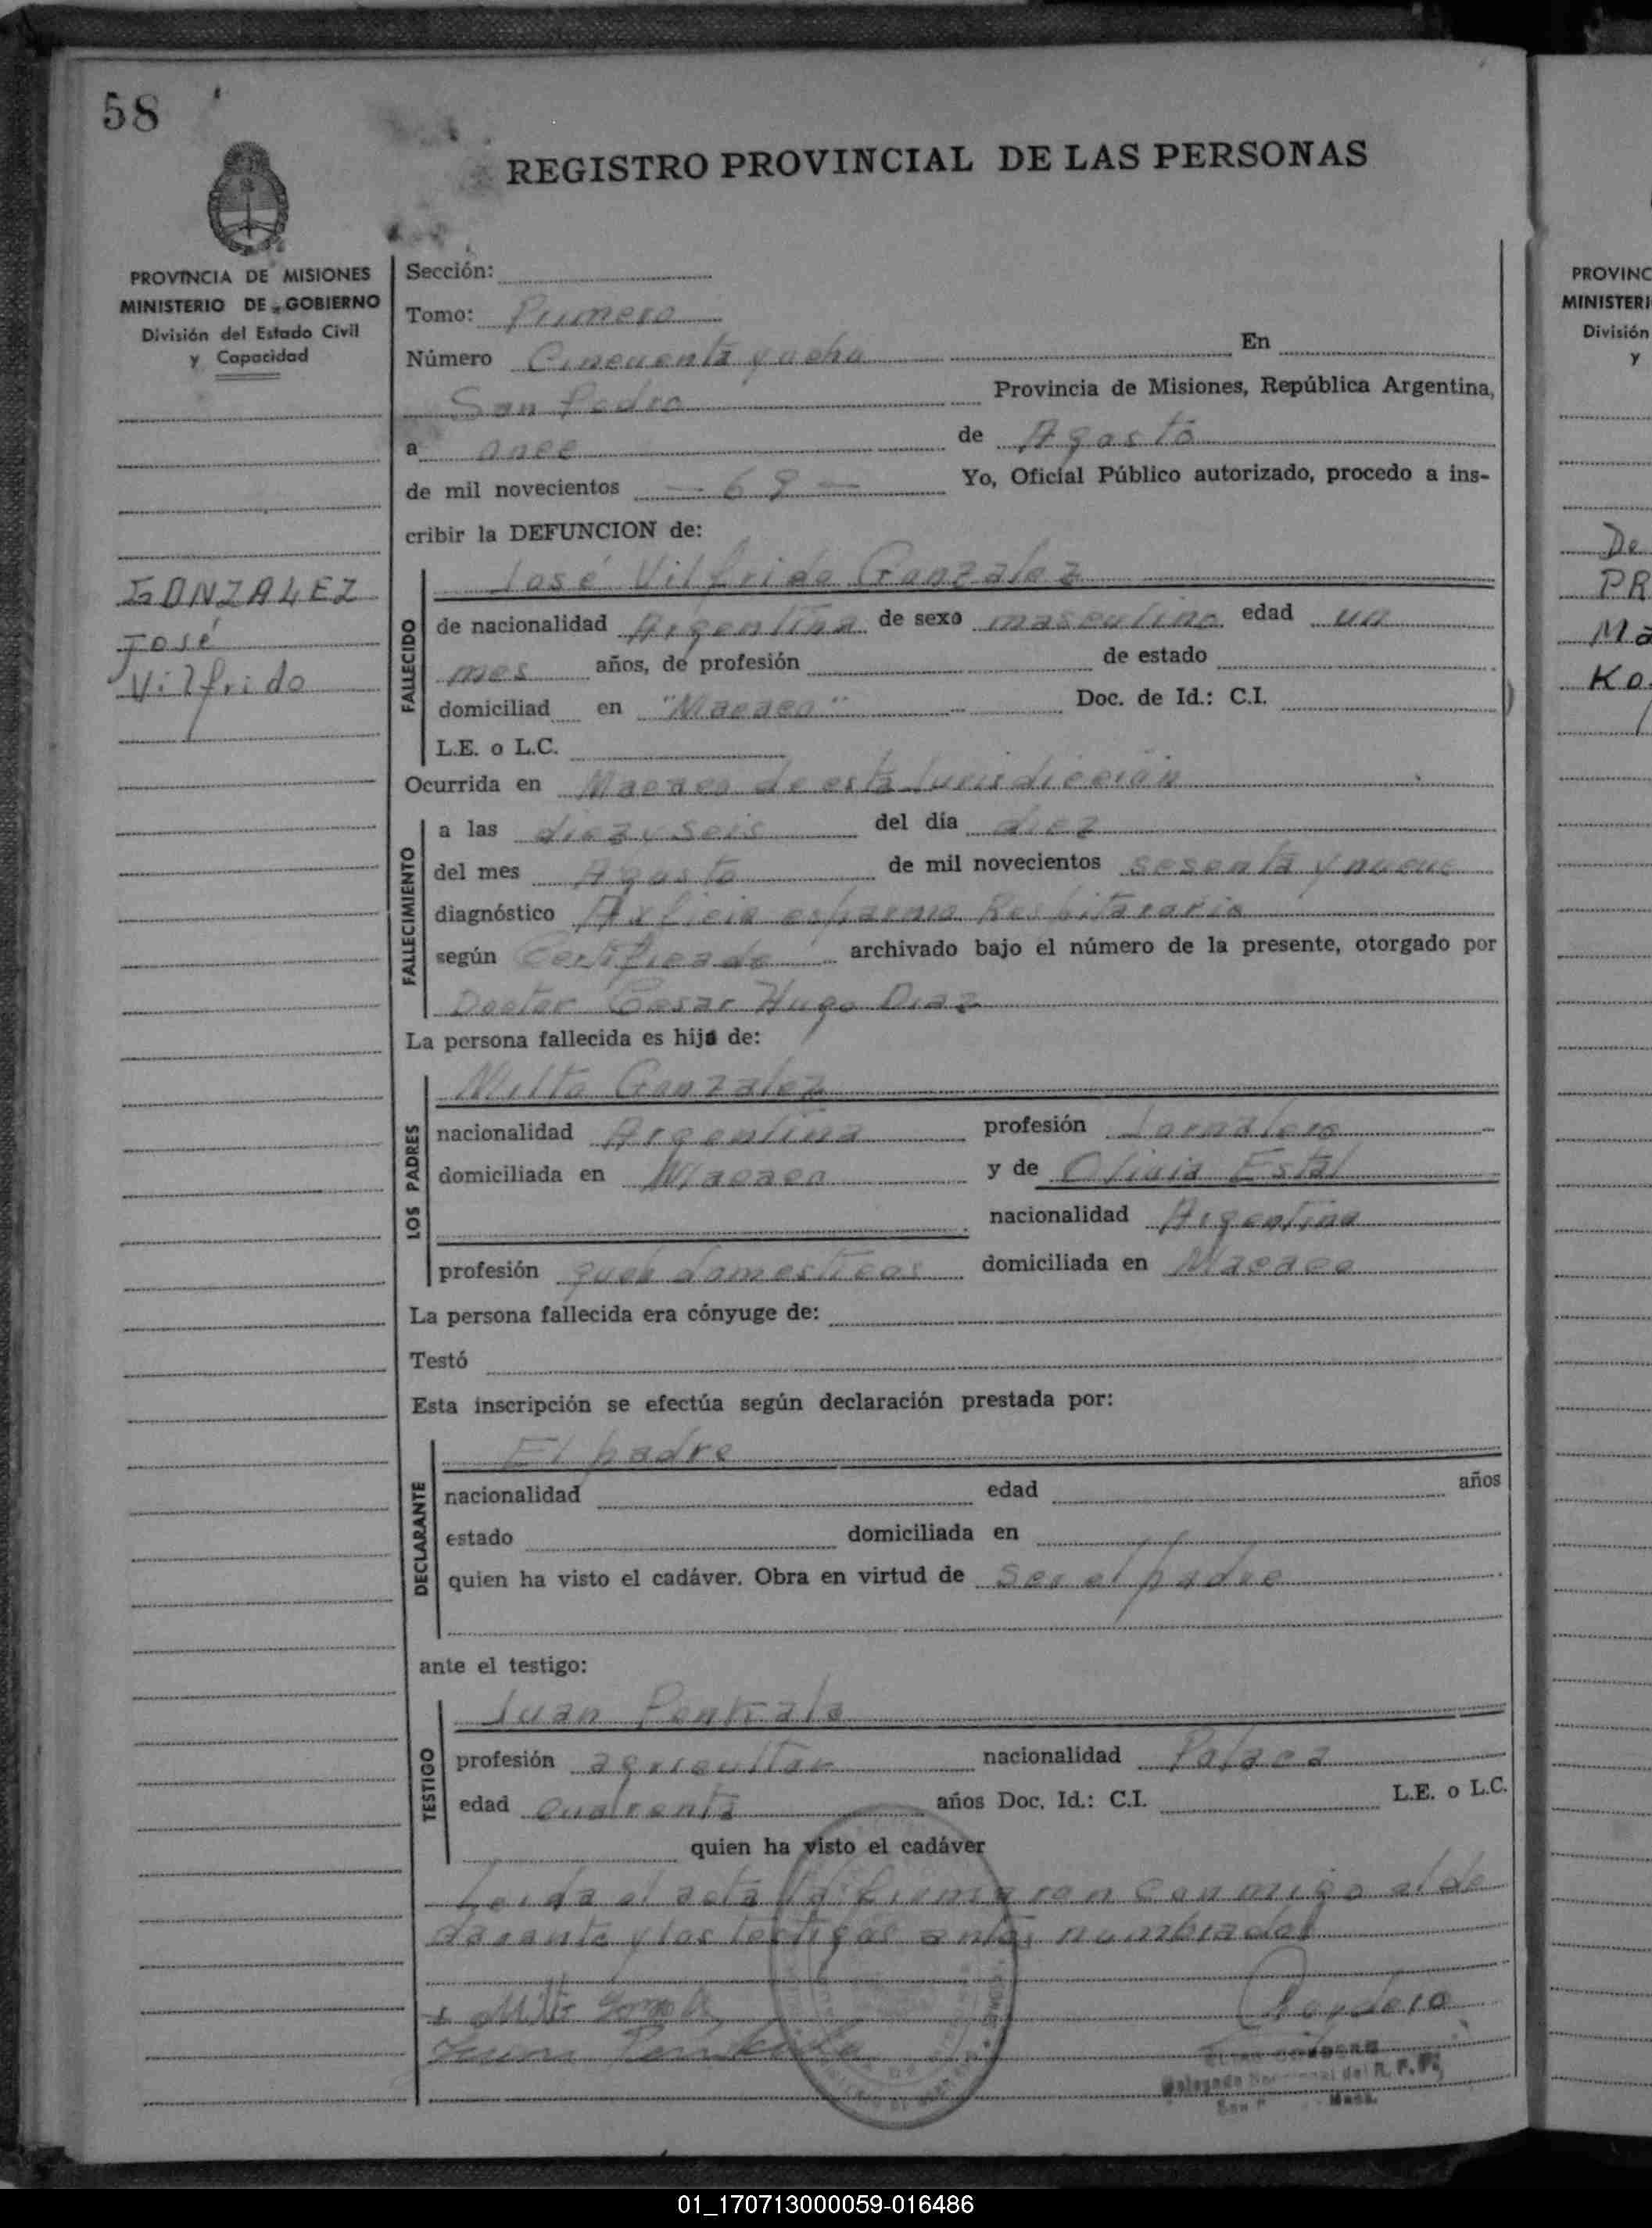 58
REGISTRO PROVINCIAL DE LAS PERSONAS
PROVINCIA DE MISIONES
MINISTERIO DE GOBIERNO
División del Estado Civil
y Capacidad
GONZALEZ
José
Vilfrido
Sección:
Tomo: Primero
Número Cincuenta y ocho En
San Pedro Provincia de Misiones, República Argentina,
a once de Agosto
de mil novecientos - 69 - Yo, Oficial Público autorizado, procedo a ins-
cribir la DEFUNCION de:
FALLECIDO
José Vilfrido Gonzalez
de nacionalidad Argentina de sexo masculino edad un
mes años, de profesión de estado
domiciliad en "Macaco" Doc. de Id.: C.I.
L.E. o L.C.
Ocurrida en Macaco de esta Jurisdicción
FALLECIMIENTO
a las diez y seis del día diez
del mes Agosto de mil novecientos sesenta y nueve
diagnóstico
según Certificado archivado bajo el número de la presente, otorgado por
Doctor Cesar Hugo Diaz
La persona fallecida es hijo de:
LOS PADRES
Milto Gonzalez
nacionalidad Argentina profesión Jornalero
domiciliada en Macaco y de Olivia Estal
nacionalidad Argentina
profesión domesticos domiciliada en Macaco
La persona fallecida era cónyuge de:
Testó
Esta inscripción se efectúa según declaración prestada por:
DECLARANTE
El padre
nacionalidad edad años
estado domiciliada en
quien ha visto el cadáver. Obra en virtud de Ser el padre
ante el testigo:
TESTIGO
Juan
profesión agricultor nacionalidad Polaca
edad cuarenta años Doc. Id.: C.I. L.E. o L.C.
quien ha visto el cadáver
Leida el acta la firmaron conmigo el de
clarante y los testigos antes nombrados
PROVINC
MINISTERI
División
y
De
PR
Ma
Ko
01_170713000059-016486